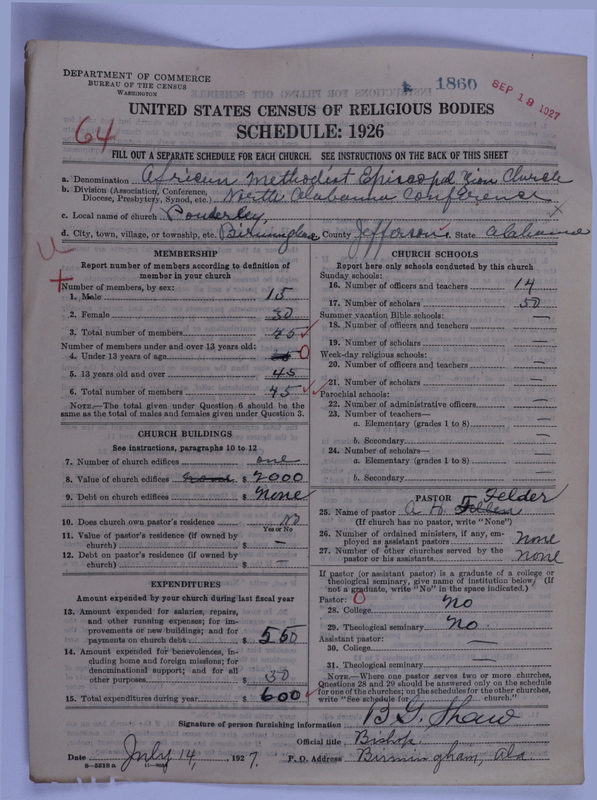 DEPARTMENT OF COMMERCE
BUREAU OF THE CENSUS
WASHINGTON
1860
SEP 19 1927
UNITED STATES CENSUS OF RELIGIOUS BODIES
SCHEDULE: 1926
64
FILL OUT A SEPARATE SCHEDULE FOR EACH CHURCH. SEE INSTRUCTIONS ON THE BACK OF THIS SHEET
a. Denomination African Methodist Episcopal Zion Church
b. Division (Association, Conference, Diocese, Presbytery, Synod, etc.) North Alabama Conference
c. Local name of church Ponderley,
d. City, town, village, or township, etc. Birmingham County Jefferson e. State Alabama
MEMBERSHIP
Report number of members according to definition of
member in your church
Number of members, by sex:
1. Male 15
2. Female 30
3. Total number of members 45
Number of members under and over 13 years old:
4. Under 13 years of age 0
5. 13 years old and over 45
6. Total number of members 45
NOTE.—The total given under Question 6 should be the
same as the total of males and females given under Question 3.
CHURCH BUILDINGS
See instructions, paragraphs 10 to 12
7. Number of church edifices one
8. Value of church edifices $ 2000
9. Debt on church edifices $ None
10. Does church own pastor's residence? No
Yes or No
11. Value of pastor's residence (if owned by
church) $ —
12. Debt on pastor's residence (if owned by
church) $ —
EXPENDITURES
Amount expended by your church during last fiscal year
13. Amount expended for salaries, repairs,
and other running expenses; for im-
provements or new buildings; and for
payments on church debt $ 550
14. Amount expended for benevolences, in-
cluding home and foreign missions; for
denominational support; and for all
other purposes $ 50
15. Total expenditures during year $ 600
CHURCH SCHOOLS
Report here only schools conducted by this church
Sunday schools:
16. Number of officers and teachers 14
17. Number of scholars 50
Summer vacation Bible schools:
18. Number of officers and teachers —
19. Number of scholars —
Week-day religious schools:
20. Number of officers and teachers —
21. Number of scholars —
Parochial schools:
22. Number of administrative officers —
23. Number of teachers—
a. Elementary (grades 1 to 8) —
b. Secondary —
24. Number of scholars—
a. Elementary (grades 1 to 8) —
b. Secondary —
PASTOR
25. Name of pastor A. D. Felder
(If church has no pastor, write "None")
26. Number of ordained ministers, if any, em-
ployed as assistant pastors None
27. Number of other churches served by the
pastor or his assistants None
If pastor (or assistant pastor) is a graduate of a college or
theological seminary, give name of institution below. (If
not a graduate, write "No" in the space indicated.)
Pastor: 0
28. College No
29. Theological seminary No.
Assistant pastor:
30. College —
31. Theological seminary —
NOTE.—Where one pastor serves two or more churches,
Questions 28 and 29 should be answered only on the schedule
for one of the churches; on the schedules for the other churches,
write "See schedule for church."
Signature of person furnishing information B G Shaw
Official title Bishop.
Date July 14, 1927. P. O. Address Birmingham, Ala.
8—5510a